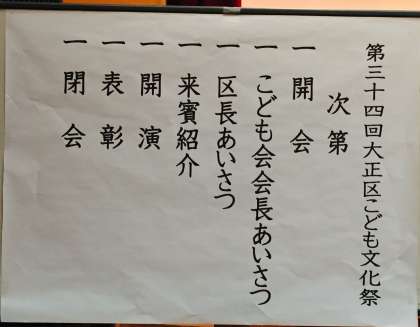 第三十四回大正区こども文化祭
次第
一 開会
一 こども会会長あいさつ
一 区長あいさつ
一 来賓紹介
一 開演
一 表彰
一 閉会